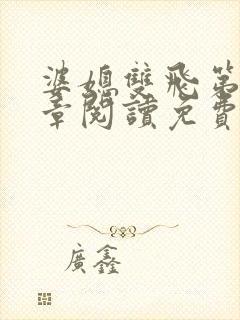 婆媳雙飛第
章閱讀免費
廣鑫